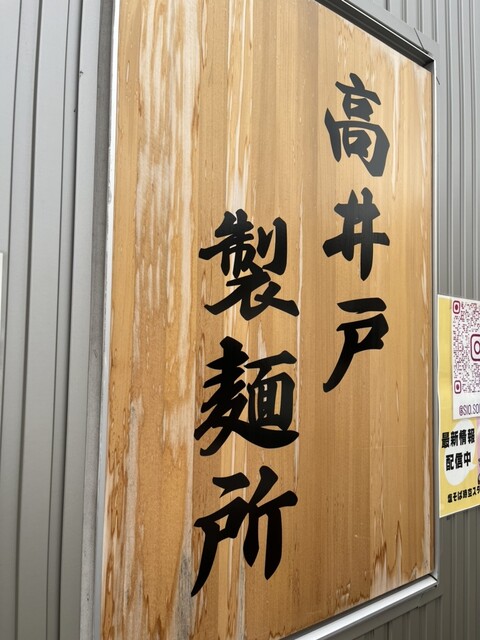 高井戸
製麺所
最新情報
配信中